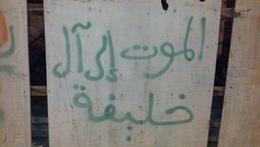 الموت إلى آل
خليفة